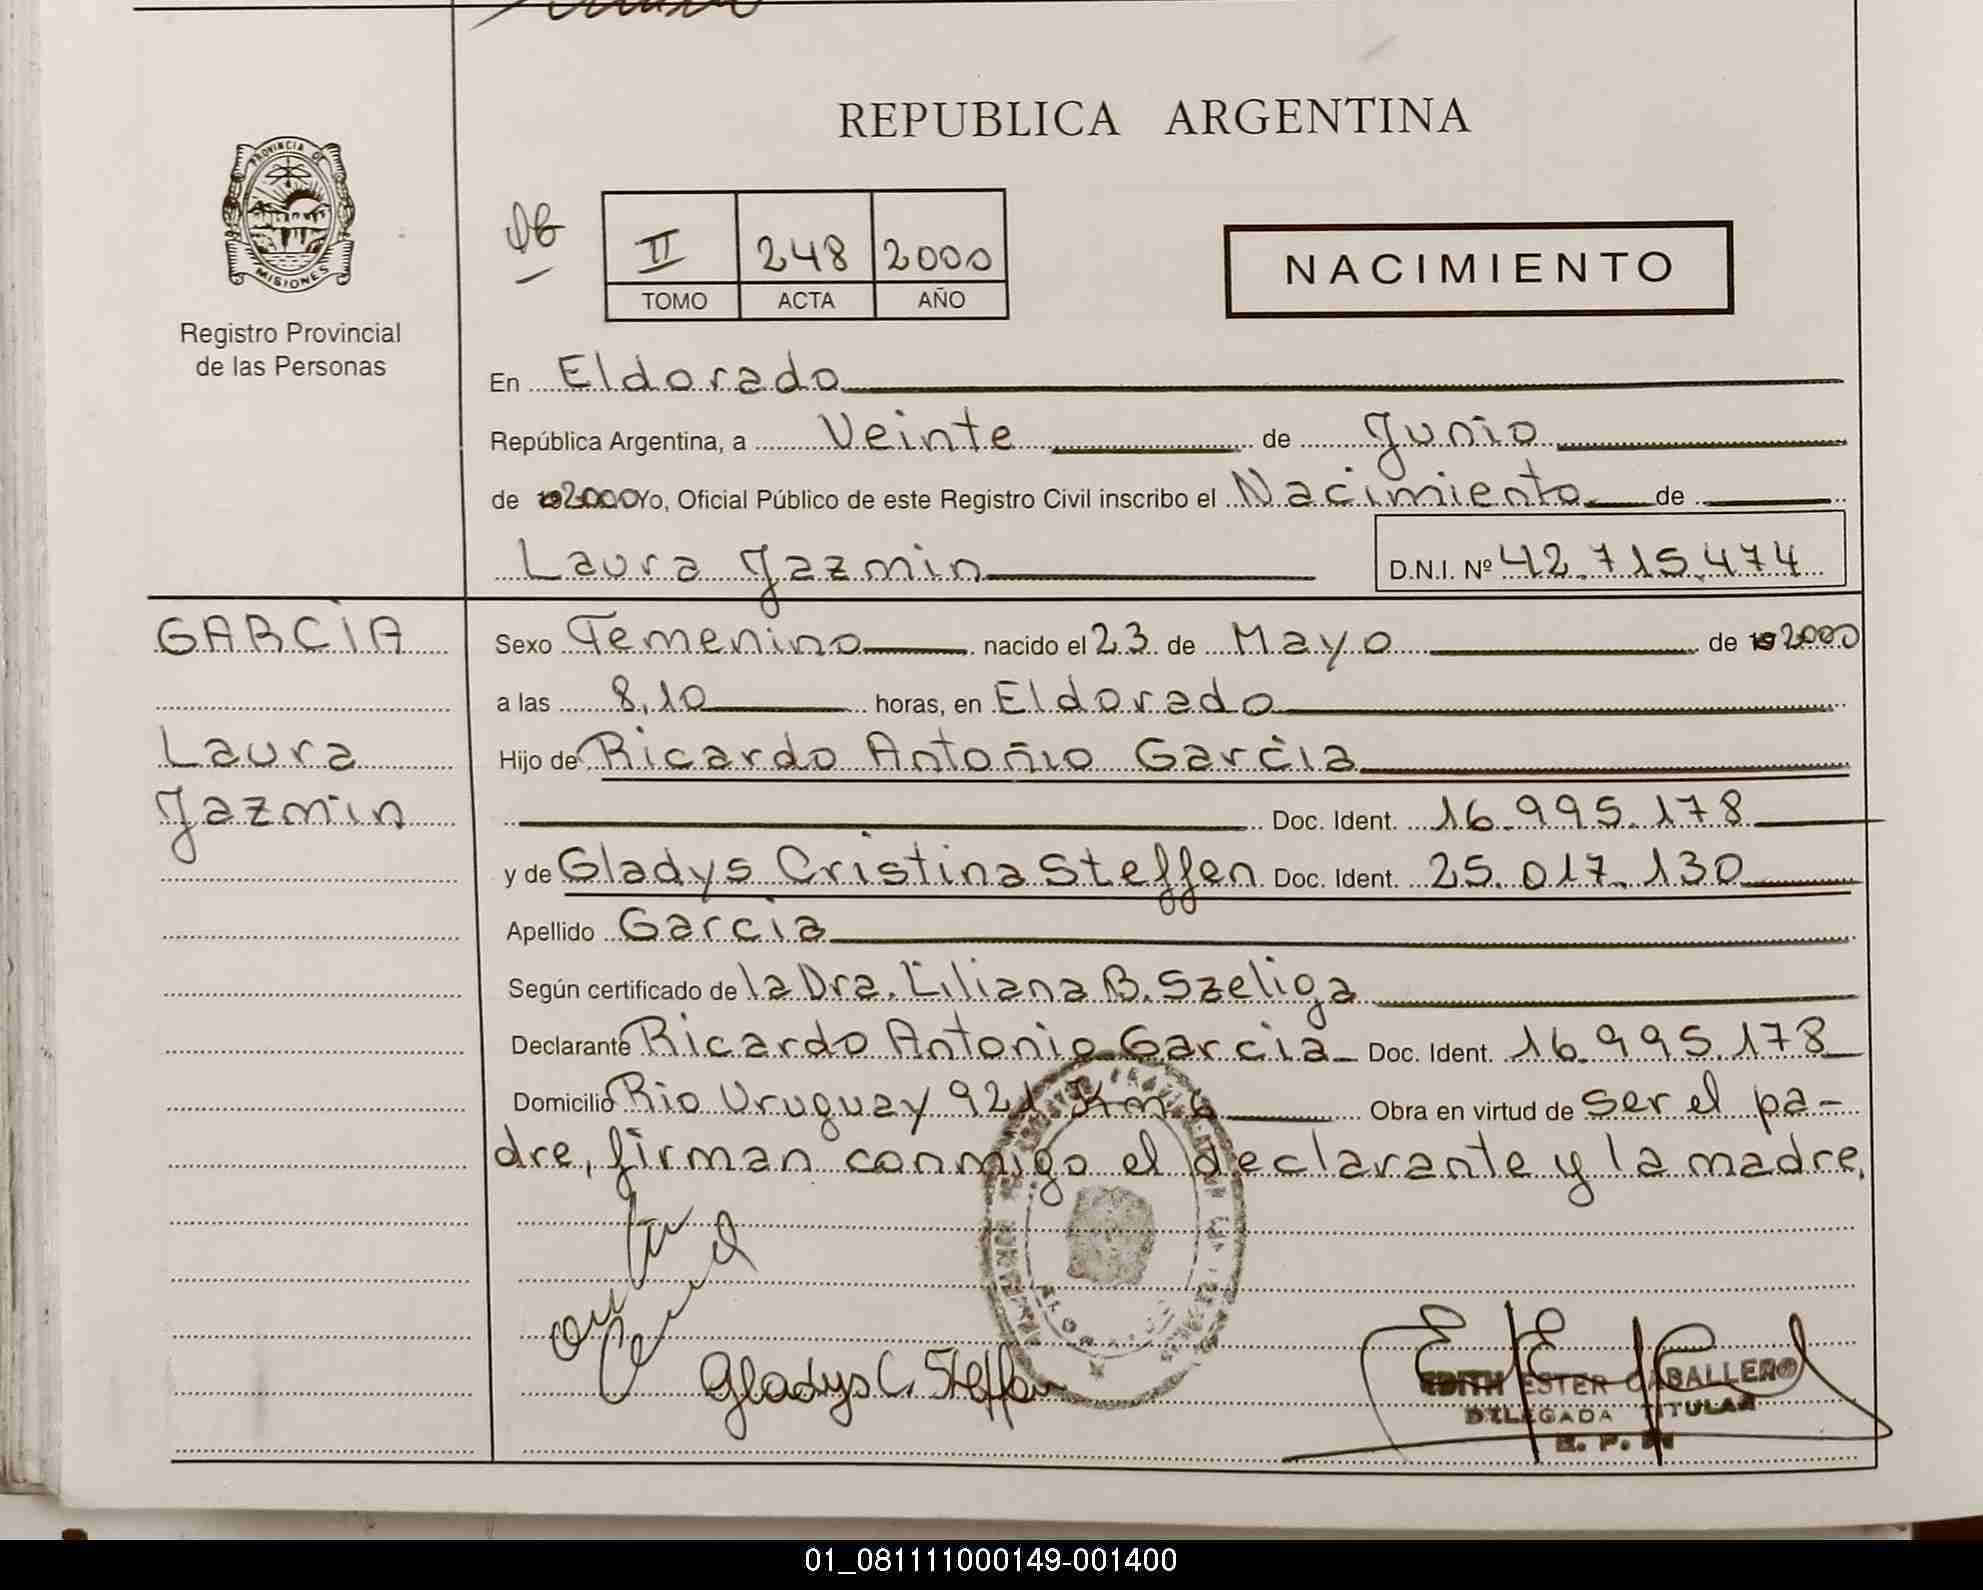 REPUBLICA ARGENTINA
PROVINCIA DE
MISIONES
Registro Provincial
de las Personas
II 248 2000
TOMO ACTA AÑO
NACIMIENTO
En Eldorado
República Argentina, a Veinte de Junio
de 192000 Yo, Oficial Público de este Registro Civil inscribo el Nacimiento de
Laura Jazmin D.N.I. Nº 42.715.474
GARCIA
Laura
Jazmin
Sexo Femenino nacido el 23 de Mayo de 192000
a las 8,10 horas, en Eldorado
Hijo de Ricardo Antonio Garcia
Doc. Ident. 16.995.178
y de Gladys Cristina Steffen Doc. Ident. 25.017.130
Apellido Garcia
Según certificado de la Dra. Liliana B. Szeliga
Declarante Ricardo Antonio Garcia Doc. Ident. 16.995.178
Domicilio Rio Uruguay 921 Km 6 Obra en virtud de ser el pa-
dre, firman conmigo el declarante y la madre.
Gladys C. Steffen
EDITH ESTER CABALLERO
DELEGADA TITULAR
01_081111000149-001400